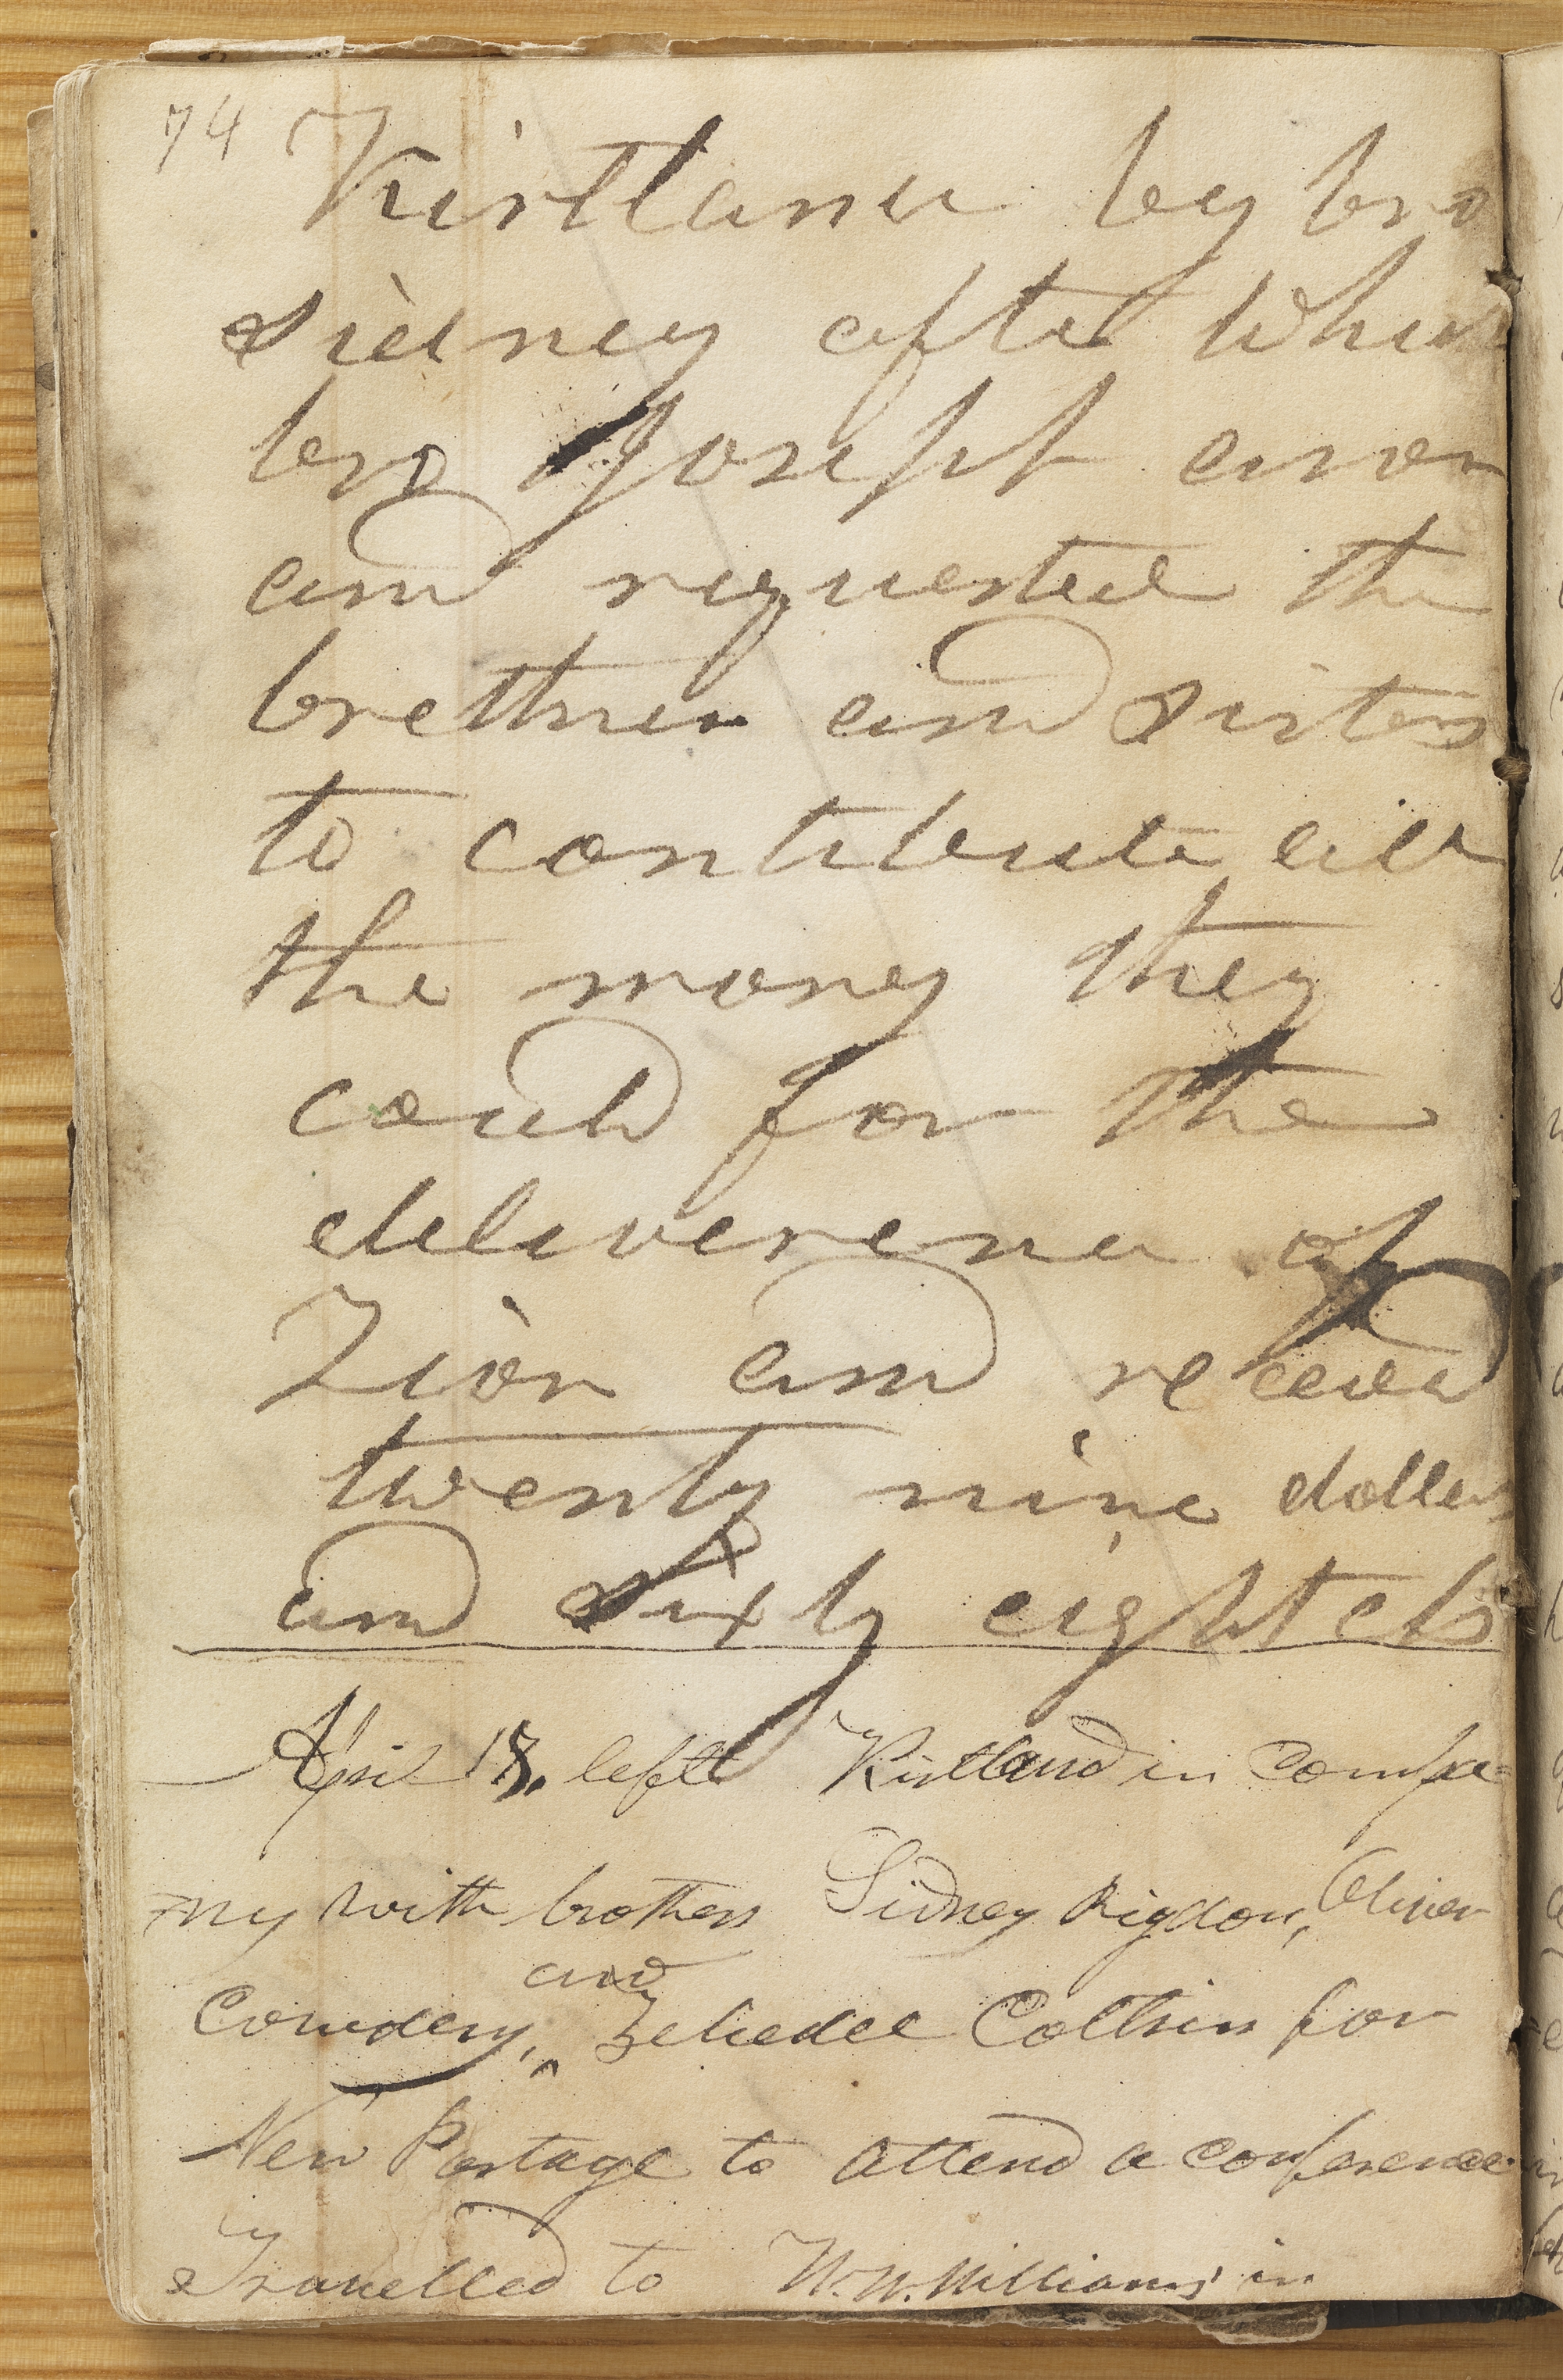 74 Kirtland by bro
Sidney after which
bro Joseph arose
and requested the
brethren and Sisters
to contribute all
the money they
could for the
deliverence of
Zion and received
twenty nine dollars
and sixty eight cts
April 18. left Kirtland in compa=
=ny with brothers Sidney Rigdon, Oliver
and
Cowdery, ^ Zebedee Coltrin for
New Portage to attend a conference
Travelled to W. W. Williams' in